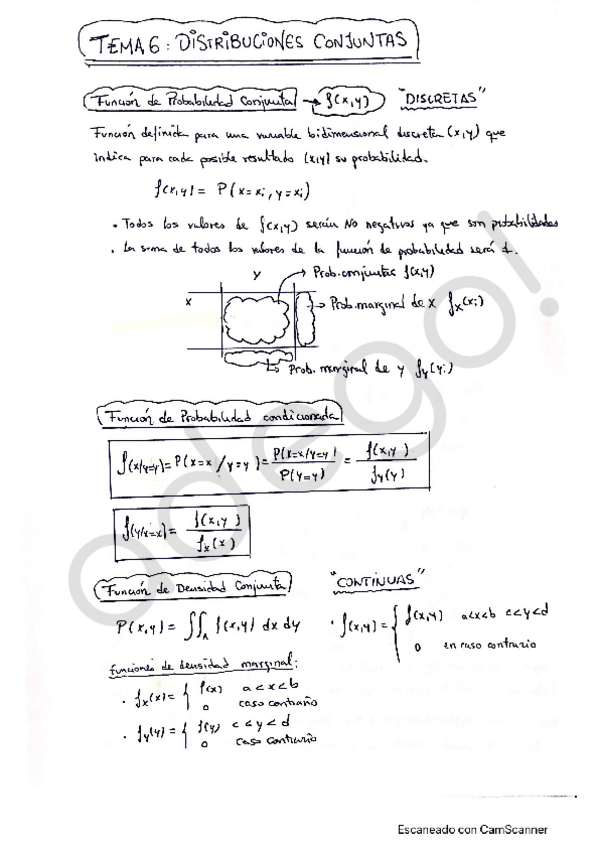 TEMA 6: DISTRIBUCIONES CONJUNTAS
Función de Probabilidad Conjunta → f(x,y) "DISCRETAS"
Función definida para una variable bidimensional discreta (x,y) que
indica para cada posible resultado (x,y) su probabilidad.
f(x,y) = P(x=xi, y=yi)
• Todos los valores de f(x,y) serán NO negativos ya que son probabilidades
• La suma de todos los valores de la función de probabilidad será 1.
y → Prob. conjuntas f(x,y)
x → Prob. marginal de x fx(xi)
→ Prob. marginal de y fy(yi)
Función de Probabilidad condicionada
f(x/y=y) = P(x=x / y=y) = P(x=x/y=y) / P(y=y) = f(x,y) / fy(y)
f(y/x=x) = f(x,y) / fx(x)
Función de Densidad Conjunta "CONTINUAS"
P(x,y) = ∬A f(x,y) dx dy
• f(x,y) = { f(x,y) a<x<b c<y<d
0 en caso contrario
funciones de densidad marginal:
• fx(x) = { f(x) a<x<b
0 caso contrario
• fy(y) = { f(y) c<y<d
0 caso contrario
adego!
Escaneado con CamScanner